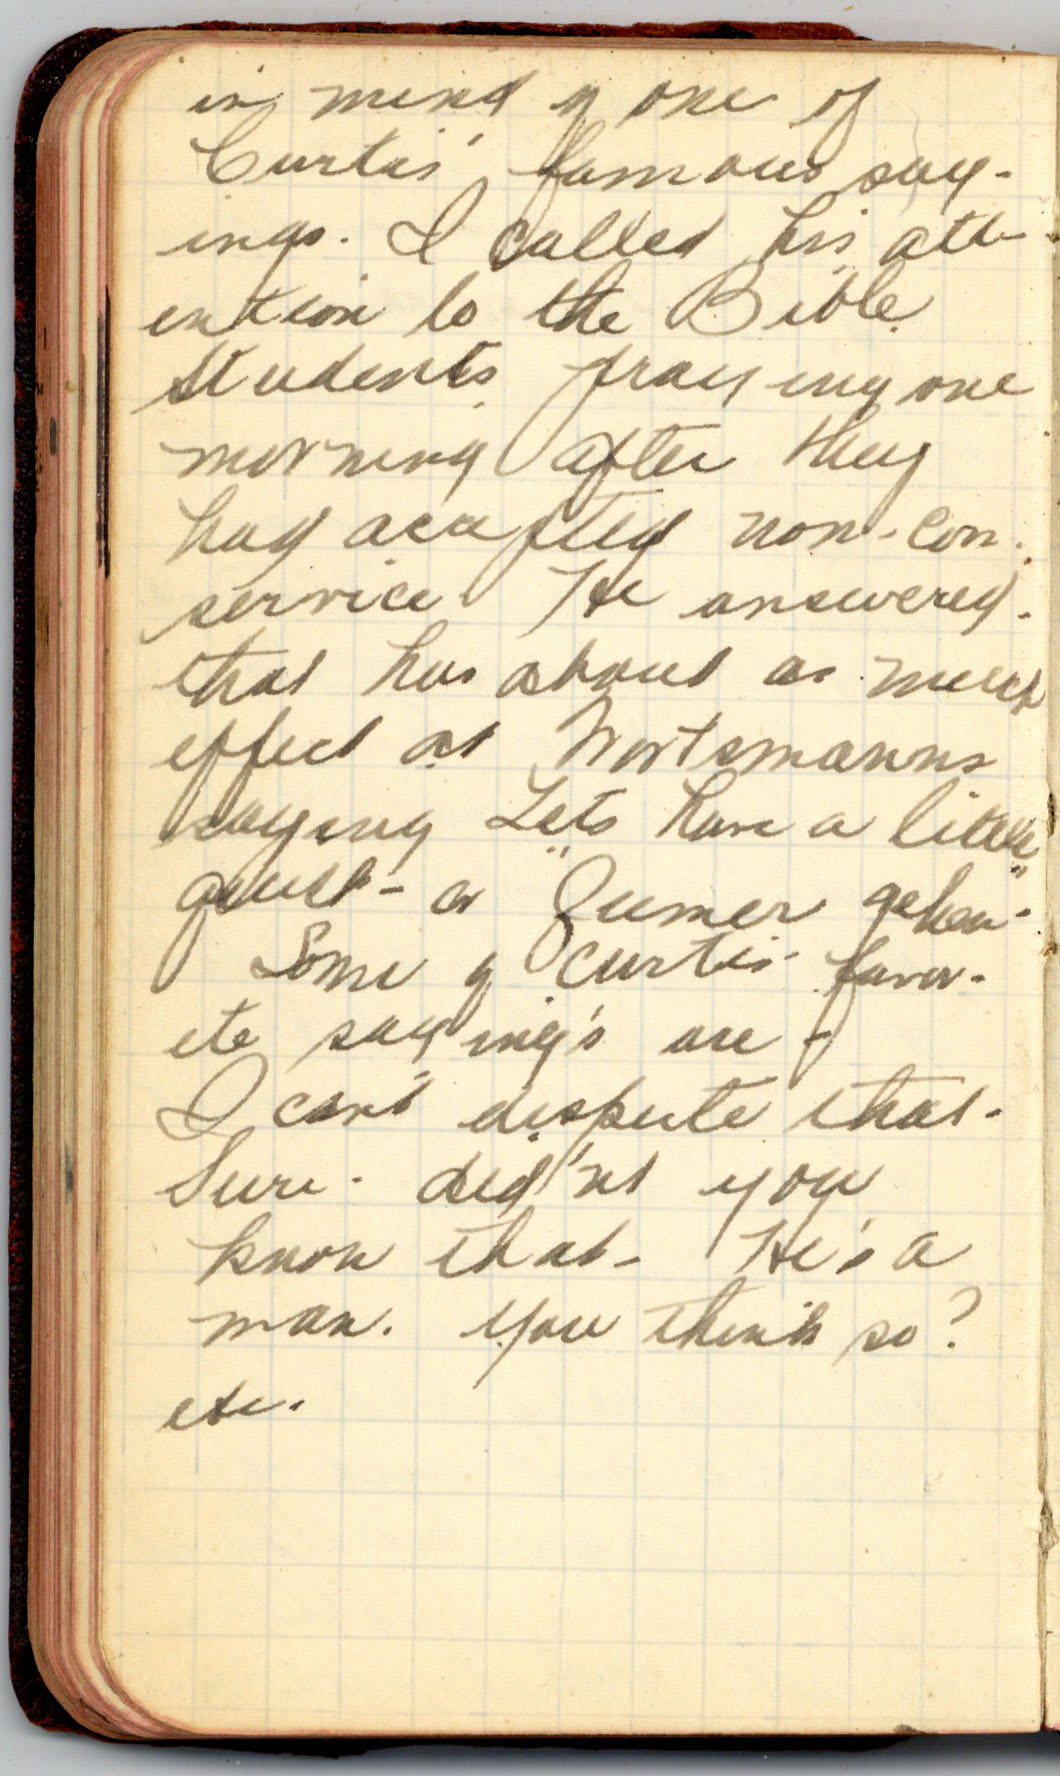 in mind of one of
Curtis' famous say-
ings. I called his att-
ention to the Bible
Students praying one
morning after they
had accepted non-com.
service He answered.
that has about as much
effect as Wortsmanns
saying "Lets have a little"
quiet - or gehen.
Some of Curtis favor-
ite saying's are -
I can't dispute that.
Sure. did'nt you
know that - He's a
man. You think so?
etc.